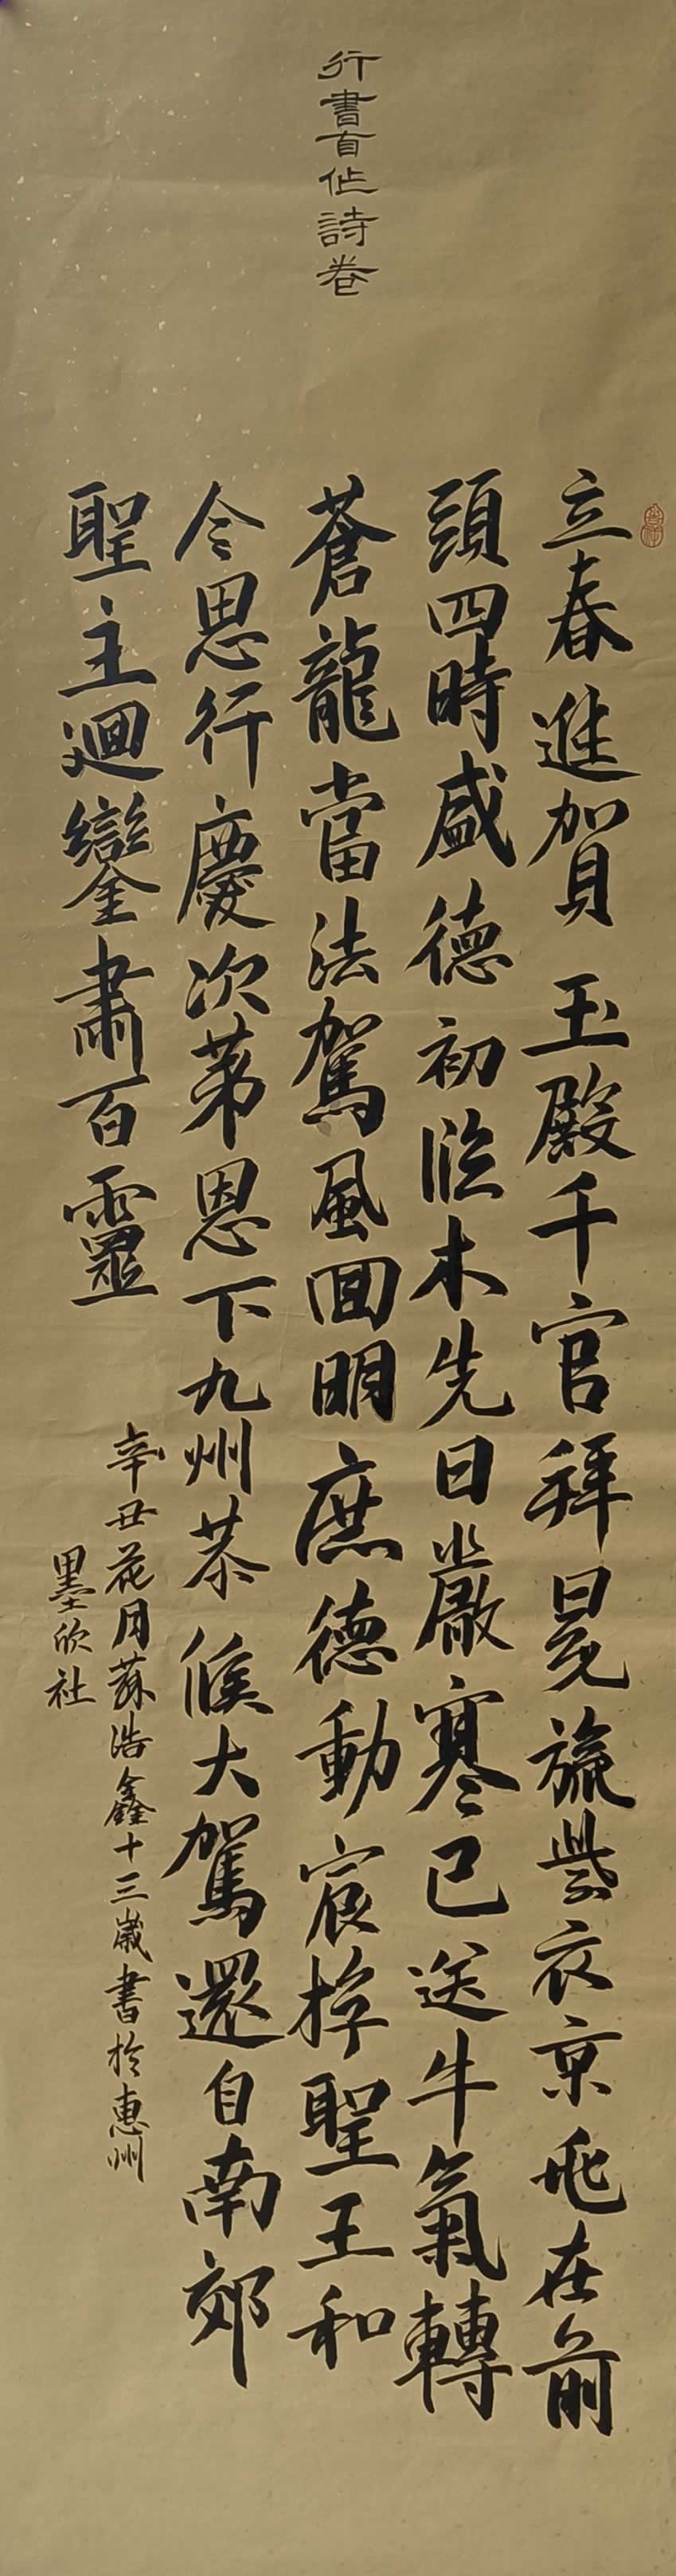 行書自作詩卷
立春進賀 玉殿千官拜冕旒紫衣京兆在前
頭四時盛德初臨木先日嚴寒已送牛氣轉
蒼龍當法駕風回明庶德動宸斿聖王和
令思行慶次第恩下九州恭候大駕還自南郊
聖主迴鑾肅百靈
辛丑花月蘇浩鑫十三歲書於惠州
墨欣社